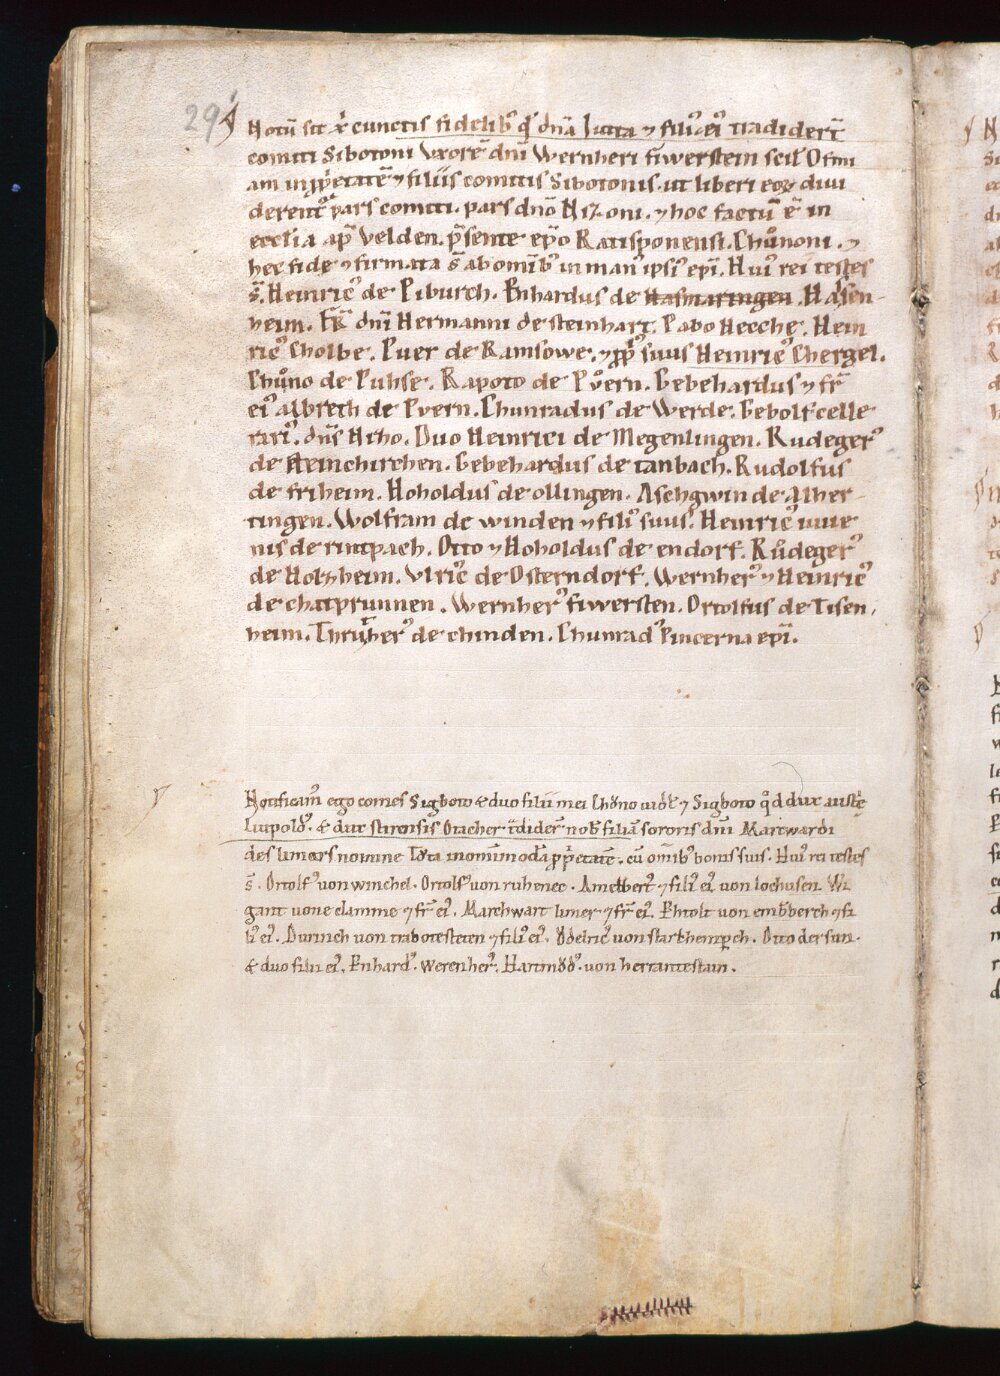 29
Notū sit x̄ cunctis fidelib' q' dn̄a Iutta ⁊ filii ei' tradider̄t
comiti Sibotoni Uxorē dn̄i Wernheri fiwerstein scil' Ofmi
am in ꝓp̄etatē ⁊ filiis comitis Sibotonis. ut liberi eoꝝ divi
derent' pars comiti. pars dn̄o Nizoni. ⁊ hoc factū ē in
eccl̄ia ap̄ Velden. p̄sente ep̄o Ratisponensi. Chůnoni. ⁊
hec fide ⁊ firmata s̄ ab om̄ib' in man' ipsi' ep̄i. Hui' rei testes
s̄. Heinric' de Piburch. Enhardus de Hasmaringen. Hasen
heim. Fr̄ dn̄i Hermanni de steinhart. Pabo Hecche. Hein
ric' Cholbe. Puer de Ramsowe. ⁊ ꝓp̄ suus Heinric' Chergel.
Chůno de Puhse. Rapoto de Půern. Gebehardus ⁊ fr̄
ei' albreth de Pvern. Chunradus de Werde. Gebolf celle
rari'. dn̄s Niho. Duo Heinrici de Megenlingen. Rudeger'
de steinchirchen. Gebehardus de tanbach. Rudolfus
de friheim. Hoholdus de ollingen. Aschgwin de Alher
tingen. Wolfram de winden ⁊ fili' suus. Heinric' iuue
nis de rintpach. Otto ⁊ Hoholdus de endorf. Růdeger'
de Holzheim. Vlric' de Osterndorf. Wernher' ⁊ Heinric'
de chatprunnen. Wernher' fiwersten. Ortolfus de Tisen
heim. Thruther' de chinden. Chunrad' Pincerna ep̄i.
Notificam' ego comes Sigboto & duo filii mei Chŏno ⁊ Sigboto q̄d dux aust'e
Liupold'. & dux stirensis Otacher t̄dider̄ nob' filiā sororis dn̄i Marcwardi
des limars nomine in om̄imodā ꝓp̄etatē. cū om̄ib' bonis suis. Hui' rei testes
s̄. Ortolf' von winchel. Ortolf' von ruhenec. Amelbert' ⁊ fili' ei' von lochusen. Wi
gant vone clamme ⁊ fr̄ ei'. Marchwart limer ⁊ fr̄ ei'. Ehtolt von emb̄berch ⁊ fi
li' ei'. Durinch von trabotesteten ⁊ fili' ei'. Ŏdelric' von starkhenperch. Otto der sun.
& duo filii ei'. Enhard'. Werenher'. Hartnŏd'. von herrantestain.